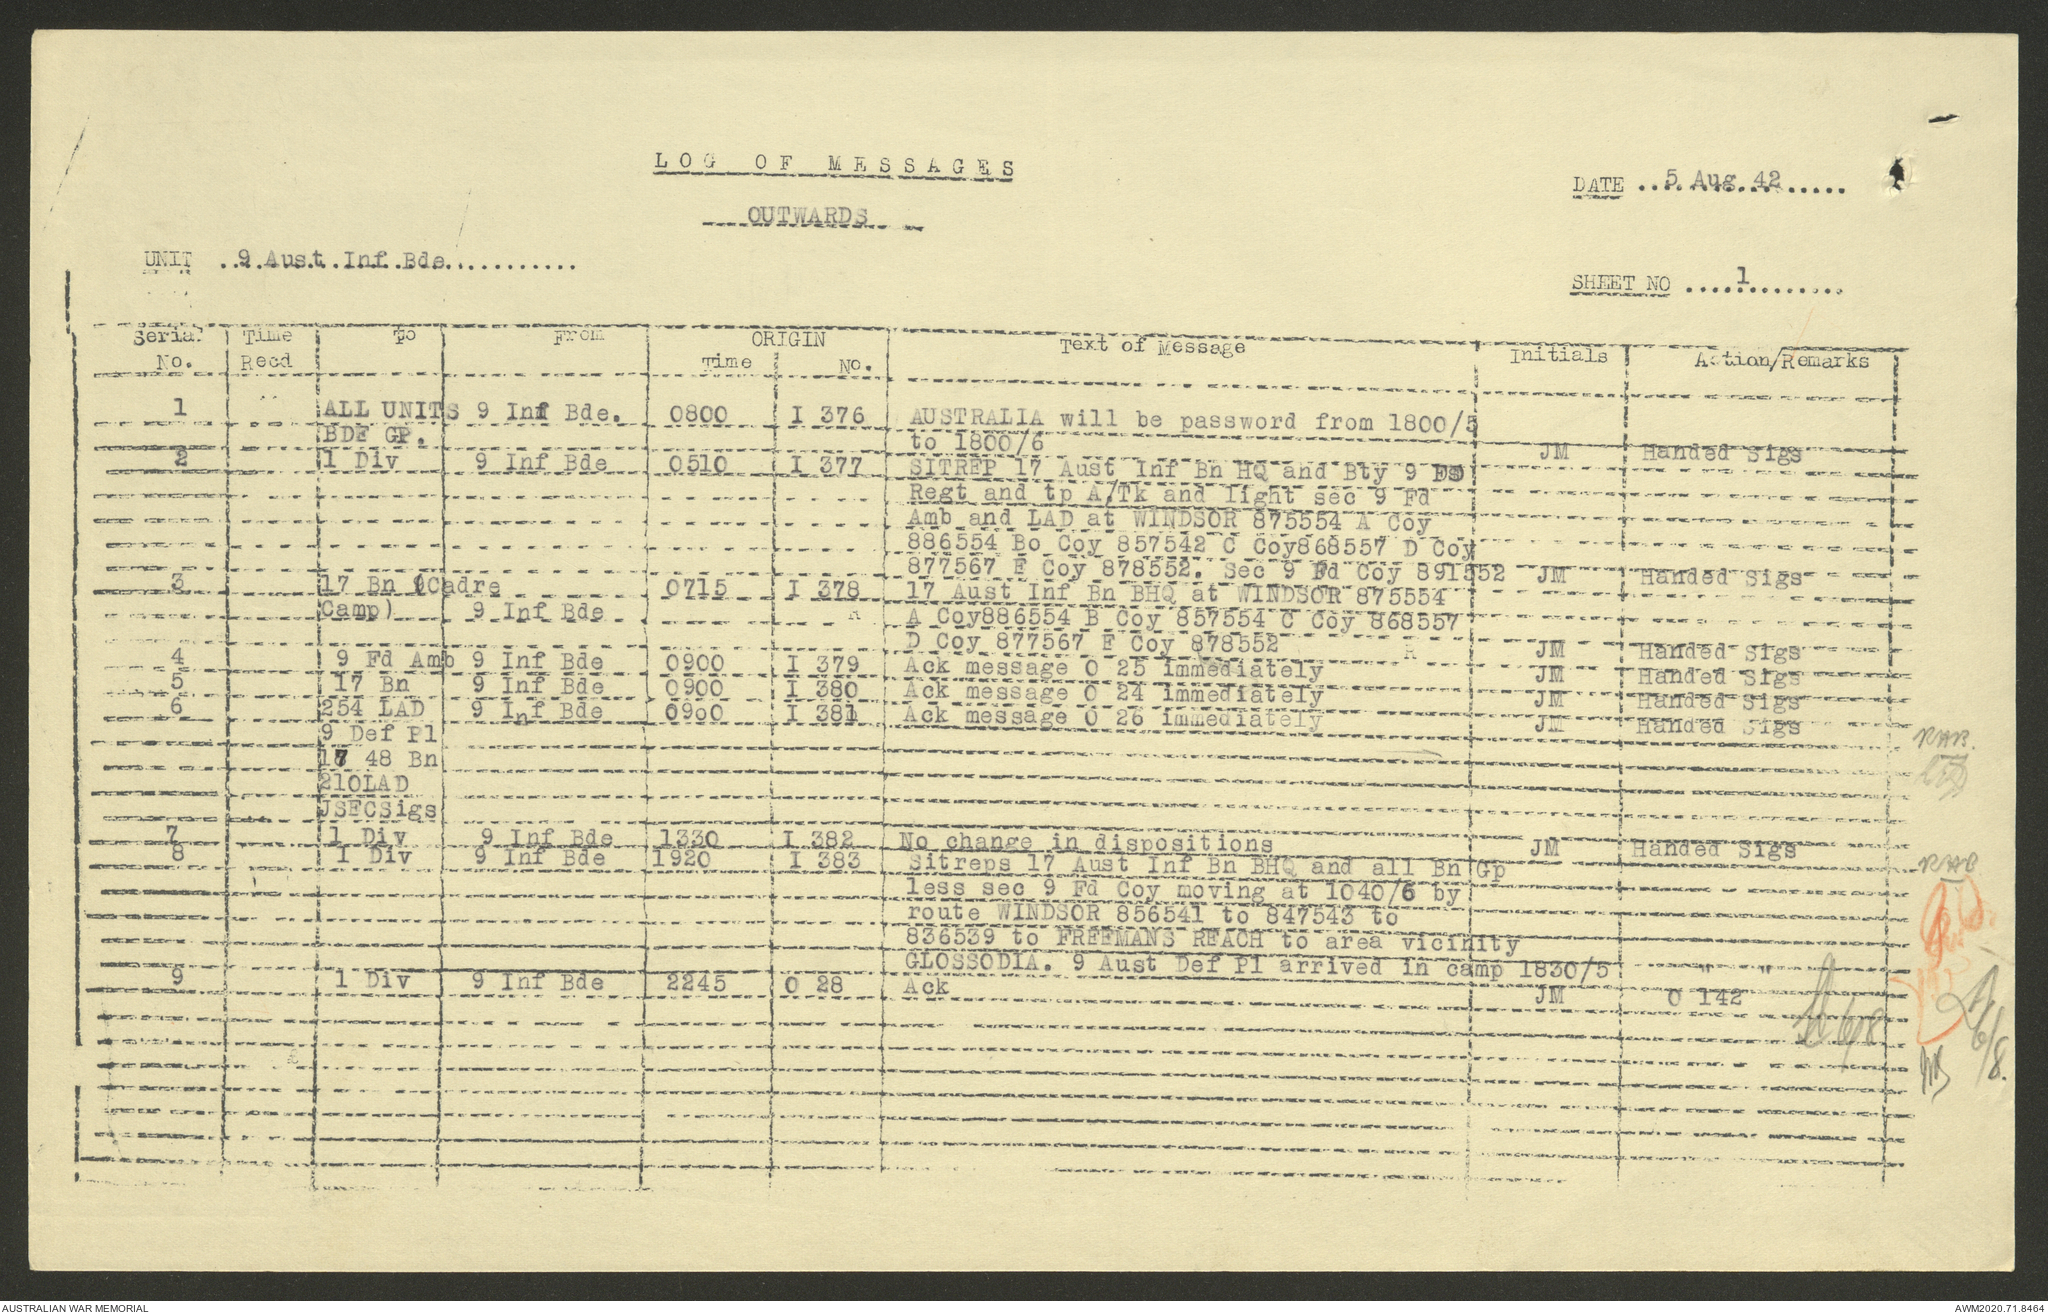 LOG OF MESSAGES
OUTWARDS
DATE ..5 Aug 42.....
UNIT ..9 Aust Inf Bde...........
SHEET NO .....1..........
Serial No. Time Recd To From ORIGIN Time No. Text of Message Initials Action/Remarks
1 ALL UNITS 9 Inf Bde. 0800 I 376 AUSTRALIA will be password from 1800/5
BDE GP. to 1800/6 JM Handed Sigs
2 1 Div 9 Inf Bde 0510 I 377 SITREP 17 Aust Inf Bn HQ and Bty 9 Fd
Regt and tp A/Tk and light sec 9 Fd
Amb and LAD at WINDSOR 875554 A Coy
886554 Bo Coy 857542 C Coy868557 D Coy
877567 E Coy 878552. Sec 9 Fd Coy 891552 JM Handed Sigs
3 17 Bn (Cadre 0715 I 378 17 Aust Inf Bn BHQ at WINDSOR 875554
Camp) 9 Inf Bde A Coy886554 B Coy 857554 C Coy 868557
D Coy 877567 E Coy 878552 JM Handed Sigs
4 9 Fd Amb 9 Inf Bde 0900 I 379 Ack message O 25 immediately JM Handed Sigs
5 17 Bn 9 Inf Bde 0900 I 380 Ack message O 24 immediately JM Handed Sigs
6 254 LAD 9 Inf Bde 0900 I 381 Ack message O 26 immediately JM Handed Sigs
9 Def Pl
17 48 Bn
210LAD
JSECSigs
7 1 Div 9 Inf Bde 1330 I 382 No change in dispositions JM Handed Sigs
8 1 Div 9 Inf Bde 1920 I 383 Sitreps 17 Aust Inf Bn BHQ and all Bn Gp
less sec 9 Fd Coy moving at 1040/6 by
route WINDSOR 856541 to 847543 to
836539 to FREEMANS REACH to area vicinity
GLOSSODIA. 9 Aust Def Pl arrived in camp 1830/5 " "
9 1 Div 9 Inf Bde 2245 O 28 Ack JM O 142
RAB.
RAB
6/8
6/8.
AUSTRALIAN WAR MEMORIAL
AWM2020.71.8464